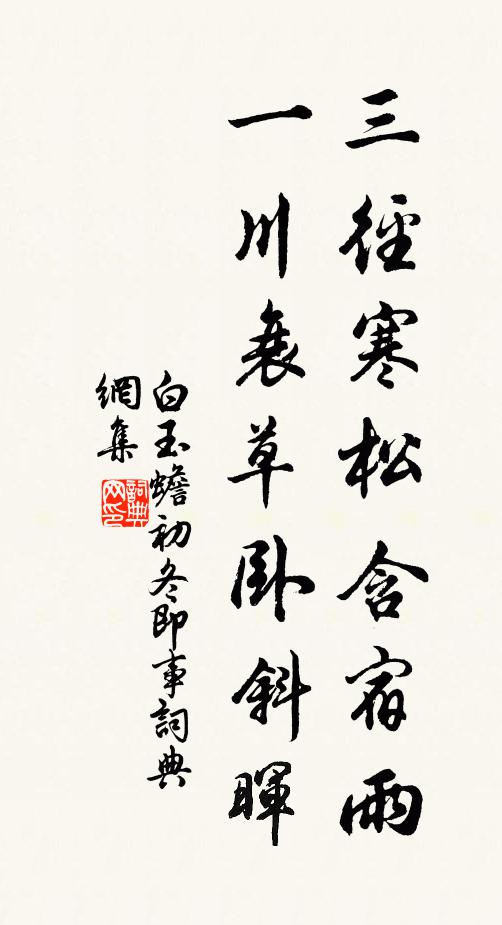 三徑寒松含宿雨
一川衰草臥斜暉
白玉蟾初冬即事詞典
網集
詞典
网印